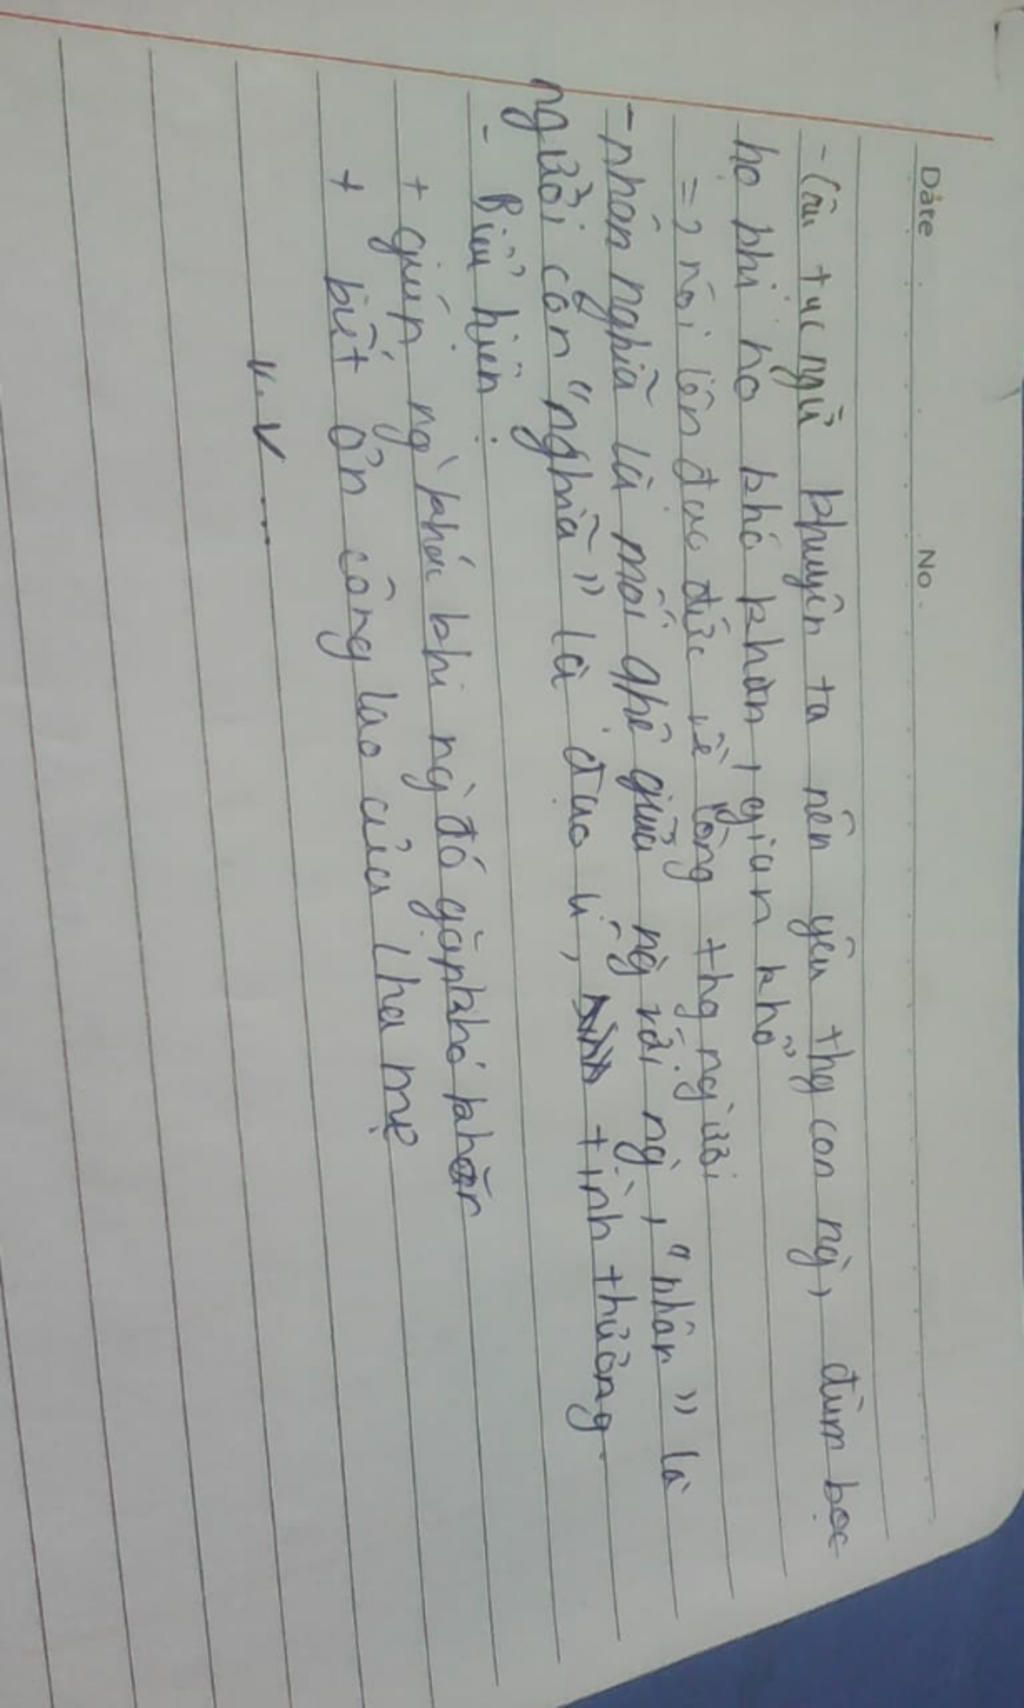 Date No.
- Câu tục ngữ khuyên ta nên yêu thg con ng`, đùm bọc
họ khi họ khó khăn, gian khổ
=> nói lên đạo đức về lòng thg người
- nhân nghĩa là mối qhê giữa ng` với ng`, "nhân" là
người còn "nghĩa" là đạo lí, tình thương.
- Biểu hiện:
+ giúp ng` khác khi ng` đó gặp khó khăn
+ biết ơn công lao của cha mẹ
v.v....